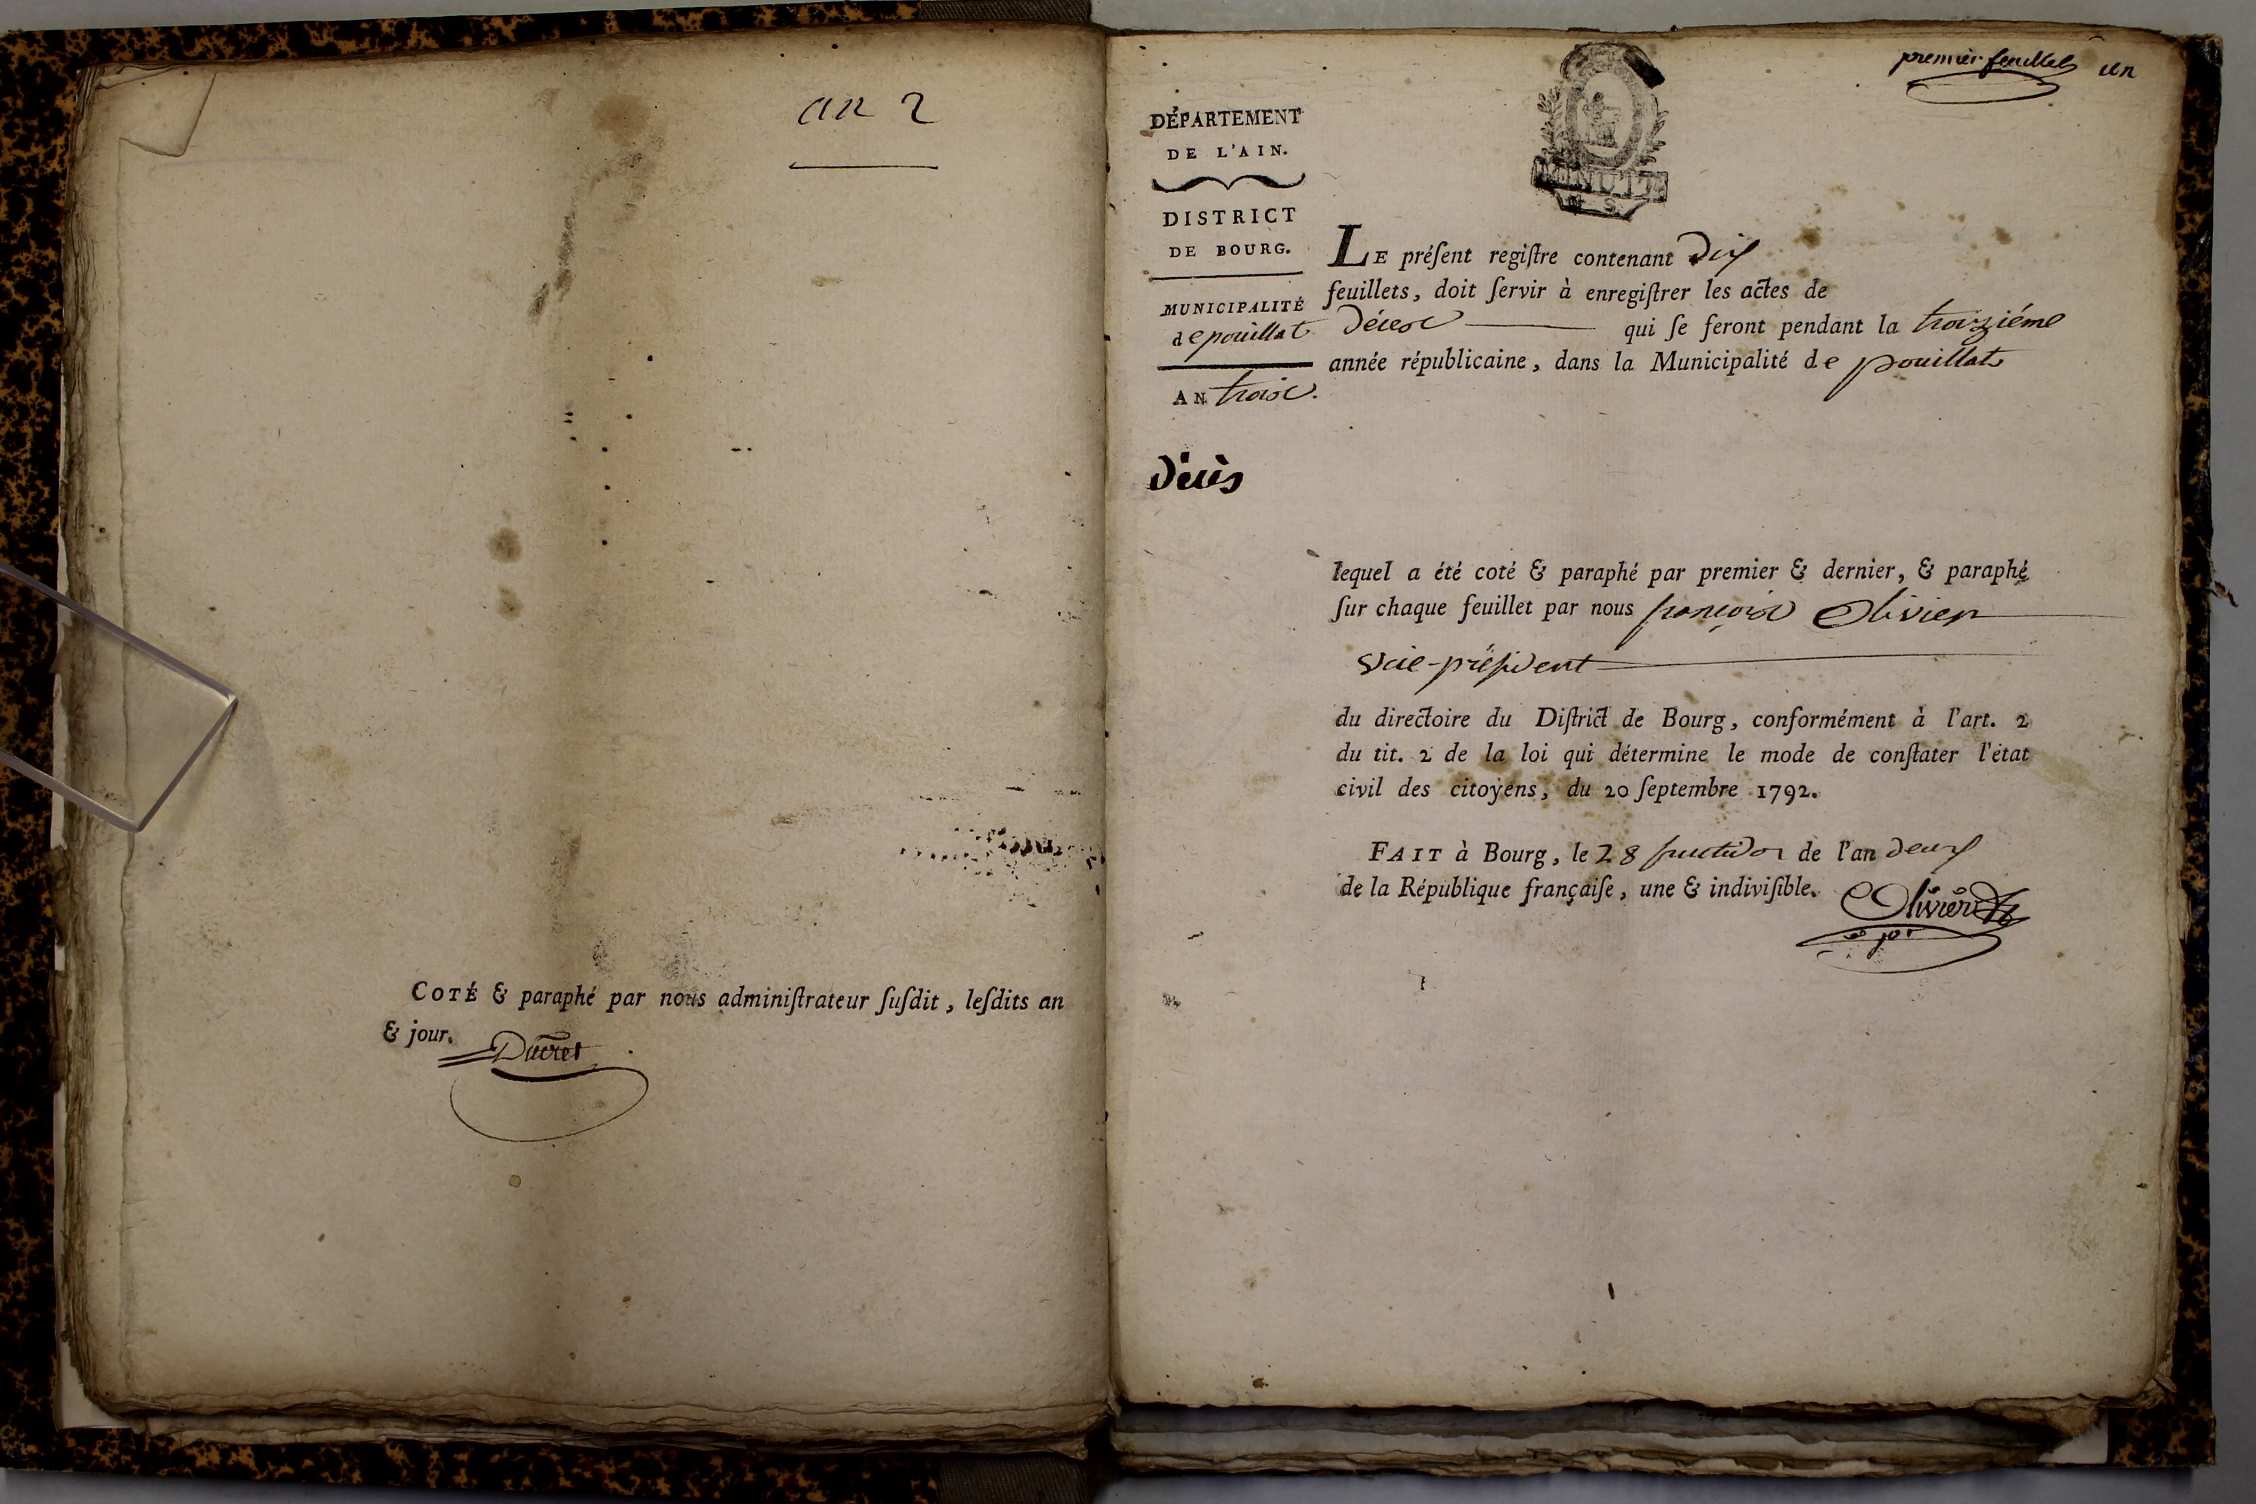 an 2
COTÉ & paraphé par nous adminiſtrateur ſuſdit, leſdits an
& jour. Ducret
premier feuillet un
DÉPARTEMENT
DE L'AIN.
DISTRICT
DE BOURG.
MUNICIPALITÉ
de pouillat
AN trois.
Décès
MINUTE
LE préſent regiſtre contenant Dix
feuillets, doit ſervir à enregiſtrer les actes de
Décès qui ſe feront pendant la troiziéme
année républicaine, dans la Municipalité de pouillat
lequel a été coté & paraphé par premier & dernier, & paraphé
ſur chaque feuillet par nous françois Olivier
Vice-préſident
du directoire du Diſtrict de Bourg, conformément à l'art. 2
du tit. 2 de la loi qui détermine le mode de conſtater l'état
civil des citoyens, du 20 ſeptembre 1792.
FAIT à Bourg, le 28 fructidor de l'an deux
de la République françaiſe, une & indiviſible. Olivier